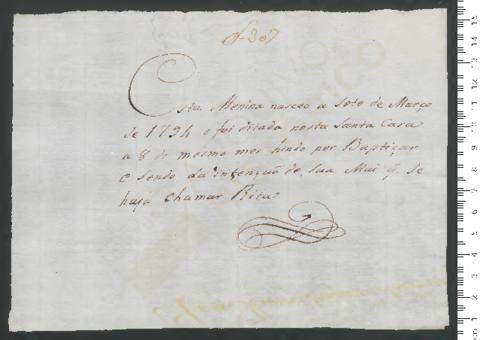 f. 307
Esta Menina nasceo a Sete de Março
de 1794 e foi ditada nesta Santa Casa
a 8 do mesmo mes hindo por Baptizar
e Sendo da intenção de Sua Mai q̃ Se
haja Chamar Rita